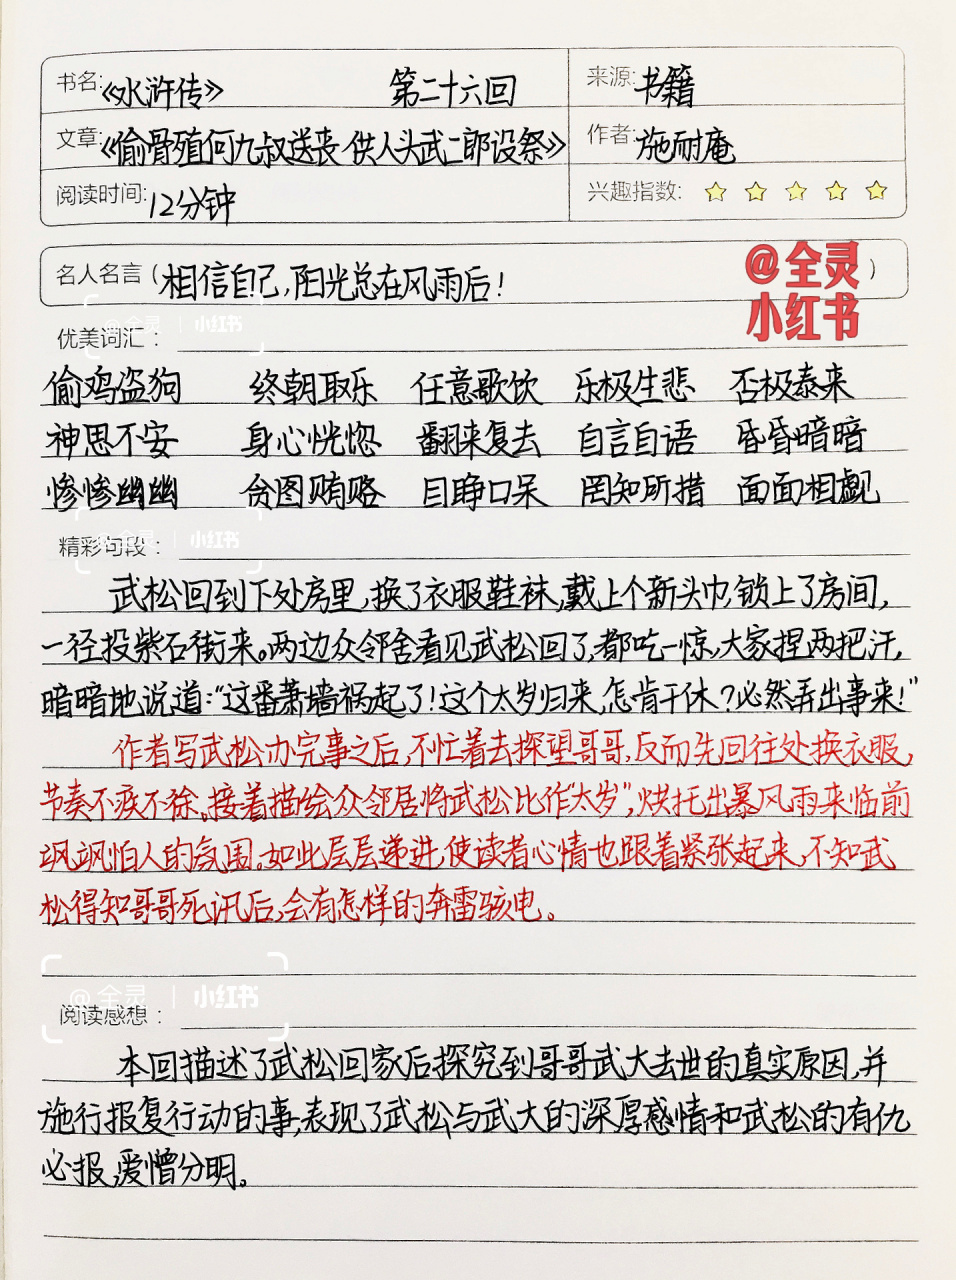 书名:《水浒传》 第二十六回 来源:书籍
文章:《偷骨殖何九叔送丧 供人头武二郎设祭》 作者:施耐庵
阅读时间:12分钟 兴趣指数:
名人名言(相信自己,阳光总在风雨后!)
@全灵
小红书
@全灵 | 小红书
优美词汇:
偷鸡盗狗 终朝取乐 任意歌饮 乐极生悲 否极泰来
神思不安 身心恍惚 翻来复去 自言自语 昏昏暗暗
惨惨幽幽 贪图贿赂 目睁口呆 罔知所措 面面相觑
@全灵 | 小红书
精彩句段:
武松回到下处房里,换了衣服鞋袜,戴上个新头巾,锁上了房间,
一径投紫石街来。两边众邻舍看见武松回了,都吃一惊,大家捏两把汗,
暗暗地说道:“这番萧墙祸起了!这个太岁归来,怎肯干休?必然弄出事来!”
作者写武松办完事之后,不忙着去探望哥哥,反而先回住处换衣服,
节奏不疾不徐。接着描绘众邻居将武松比作“太岁”,烘托出暴风雨来临前
飒飒怕人的氛围。如此层层递进,使读者心情也跟着紧张起来,不知武
松得知哥哥死讯后,会有怎样的奔雷骇电。
@全灵 | 小红书
阅读感想:
本回描述了武松回家后探究到哥哥武大去世的真实原因,并
施行报复行动的事,表现了武松与武大的深厚感情和武松的有仇
必报,爱憎分明。